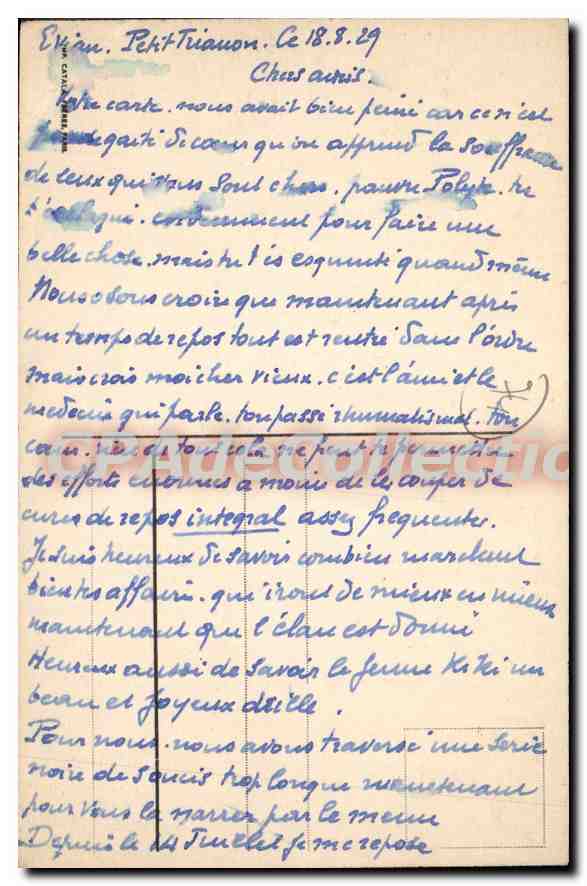 Evian. Petit Trianon. Ce 18.8.29
Chers amis.
Votre carte. nous avait bien peiné car ce n'est
gaité de cœur qu'on apprend la souffrance
de ceux qui vous sont chers. pauvre
pour faire une
belle chose. mais tu t'es esquinté quand même
Nous osons croire que maintenant après
un temps de repos tout est rentré dans l'ordre
mais crois moi cher vieux. c'est l'ami et le
médecin qui parle. ton passé rhumatismal. ton
cœur. rien de tout cela ne peut te permettre
des efforts énormes a moins de les couper de
cures de repos intégral assez fréquentes.
Je suis heureux de savoir combien marchent
bien tes affaires. qui iront de mieux en mieux
maintenant que l'élan est donné
Heureux aussi de savoir le jeune Kiki un
beau et joyeux drille.
Pour nous. nous avons traversé une série
noire de soucis trop longue maintenant
pour vous la narrer par le menu
Depuis le 14 Juillet je me repose
IMP. CATALA FRERES, PARIS
CPACollection